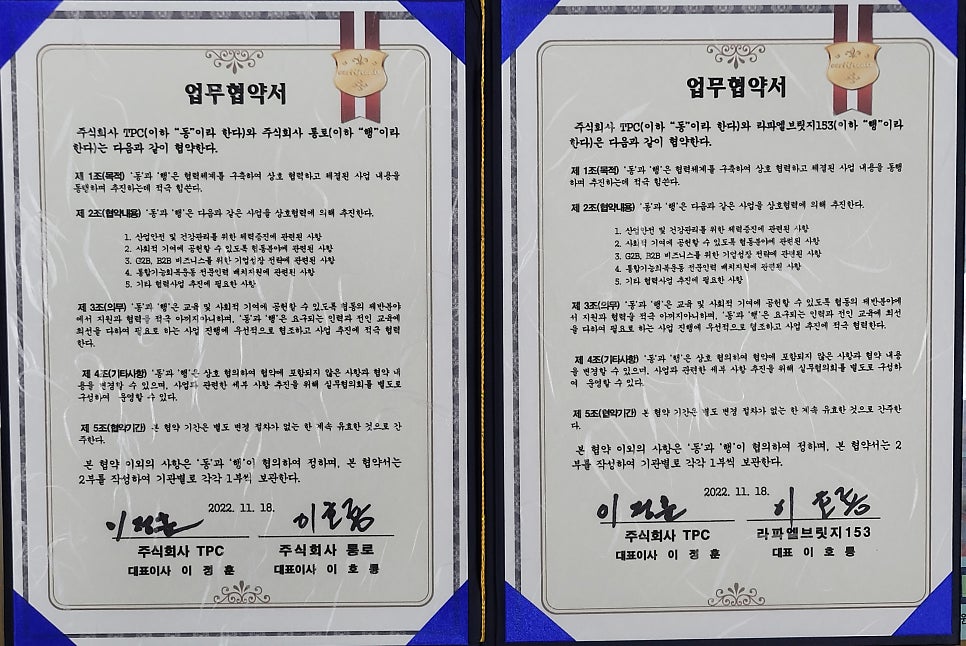 업무협약서
주식회사 TPC(이하 "동"이라 한다)와 주식회사 통로(이하 "행"이라
한다)는 다음과 같이 협약한다.
제 1조(목적) '동'과 '행'은 협력체계를 구축하여 상호 협력하고 체결된 사업 내용을
동행하며 추진하는데 적극 힘쓴다.
제 2조(협약내용) '동'과 '행'은 다음과 같은 사업을 상호협력에 의해 추진한다.
1. 산업안전 및 건강관리를 위한 체력증진에 관련된 사항
2. 사회적 기여에 공헌할 수 있도록 협동분야에 관련된 사항
3. G2B, B2B 비즈니스를 위한 기업성장 전략에 관련된 사항
4. 통합기능회복운동 전문인력 배치지원에 관련된 사항
5. 기타 협력사업 추진에 필요한 사항
제 3조(의무) '동'과 '행'은 교육 및 사회적 기여에 공헌할 수 있도록 협동의 제반분야
에서 지원과 협력을 적극 아끼지아니하며, '동'과 '행'은 요구되는 인력과 전인 교육에
최선을 다하여 필요로 하는 사업 진행에 우선적으로 협조하고 사업 추진에 적극 협력
한다.
제 4조(기타사항) '동'과 '행'은 상호 협의하여 협약에 포함되지 않은 사항과 협약 내
용을 변경할 수 있으며, 사업과 관련한 세부 사항 추진을 위해 실무협의회를 별도로
구성하여 운영할 수 있다.
제 5조(협약기간) 본 협약 기간은 별도 변경 절차가 없는 한 계속 유효한 것으로 간
주한다.
본 협약 이외의 사항은 '동'과 '행'이 협의하여 정하며, 본 협약서는
2부를 작성하여 기관별로 각각 1부씩 보관한다.
2022. 11. 18.
이정훈 이호룡
주식회사 TPC 주식회사 통로
대표이사 이 정 훈 대표이사 이 호 룡
업무협약서
주식회사 TPC(이하 "동"이라 한다)와 라파엘브릿지153(이하 "행"이라
한다)은 다음과 같이 협약한다.
제 1조(목적) '동'과 '행'은 협력체계를 구축하여 상호 협력하고 체결된 사업 내용을 동행
하며 추진하는데 적극 힘쓴다.
제 2조(협약내용) '동'과 '행'은 다음과 같은 사업을 상호협력에 의해 추진한다.
1. 산업안전 및 건강관리를 위한 체력증진에 관련된 사항
2. 사회적 기여에 공헌할 수 있도록 협동분야에 관련된 사항
3. G2B, B2B 비즈니스를 위한 기업성장 전략에 관련된 사항
4. 통합기능회복운동 전문인력 배치지원에 관련된 사항
5. 기타 협력사업 추진에 필요한 사항
제 3조(의무) '동'과 '행'은 교육 및 사회적 기여에 공헌할 수 있도록 협동의 제반분야에
서 지원과 협력을 적극 아끼지아니하며, '동'과 '행'은 요구되는 인력과 전인 교육에 최선
을 다하여 필요로 하는 사업 진행에 우선적으로 협조하고 사업 추진에 적극 협력한다.
제 4조(기타사항) '동'과 '행'은 상호 협의하여 협약에 포함되지 않은 사항과 협약 내용
을 변경할 수 있으며, 사업과 관련한 세부 사항 추진을 위해 실무협의회를 별도로 구성하
여 운영할 수 있다.
제 5조(협약기간) 본 협약 기간은 별도 변경 절차가 없는 한 계속 유효한 것으로 간주한
다.
본 협약 이외의 사항은 '동'과 '행'이 협의하여 정하며, 본 협약서는 2
부를 작성하여 기관별로 각각 1부씩 보관한다.
2022. 11. 18.
이정훈 이호룡
주식회사 TPC 라파엘브릿지153
대표이사 이 정 훈 대표 이 호 룡